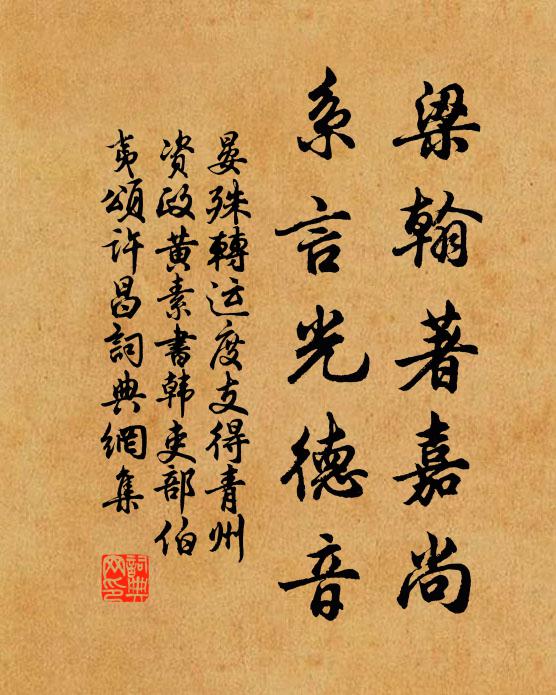 梁翰著嘉尚
系言光德音
晏殊轉运度支得青州
资政黄素書韩吏部伯
夷頌许昌詞典網集
詞典网印